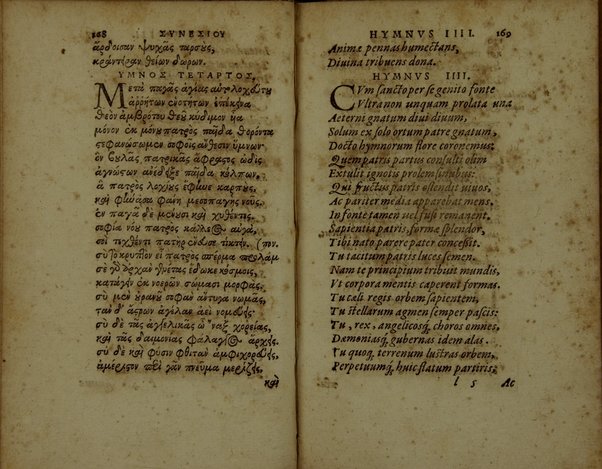 168 ΣΥΝΕΣΙΟΥ
ἄρδοισαν ψυχᾶς ταρσοὺς,
κραίνησαν θείων δώρων.
ΥΜΝΟΣ ΤΕΤΑΡΤΟΣ.
Μετὰ παγᾶς ἁγίας αὐτολοχεύτου
ἀρρήτων ἑνοτήτων ἐπέκεινα
θεὸν ἄμβροτον θεοῦ κύδιμον υἷα
μόνον ἐκ μόνου πατρὸς παῖδα θορόντα
στεφανώσωμεν σοφοῖς ἄνθεσιν ὕμνων·
ὃν βουλᾶς πατρικᾶς ἄφραστος ὠδὶς
ἀγνώστων ἀνέδειξε παῖδα κόλπων.
ἃ πατρὸς λοχίους ἔφηνε καρποὺς,
καὶ φήνασα φάνη μεσοπαγὴς νοῦς.
ἐν παγᾷ δὲ μένουσι καὶ χυθέντες.
σοφία νοῦ πατρὸς κάλλεος αὐγὰ,
σοὶ τεχθέντι πατὴρ ἔνευσε τίκτειν.
σὺ τὸ κρυπτὸν εἶ πατρὸς σπέρμα
σὲ γὰρ ἀρχὰν γενέτας ἔδωκε κόσμοις,
κατάγειν ἐκ νοερῶν σώμασι μορφὰς,
σὺ μὲν οὐρανοῦ σοφὰν ἄντυγα νωμᾷς,
τὰν δ' ἄστρων ἀγέλαν ἀεὶ νομεύεις·
σὺ δὲ τᾶς ἀγγελικᾶς ὦ ναξ χορείας,
καὶ τᾶς δαιμονίας φάλαγγος ἄρχεις.
σὺ δὲ καὶ φύσιν φθιτὰν ἀμφιχορεύεις,
ἀμέριστον περὶ γᾶν πνεῦμα μερίζεις,
καὶ
HYMNVS IIII. 169
Animæ pennas humectans,
Diuina tribuens dona.
HYMNVS IIII.
CVm sancto per se genito fonte
Vltra non unquam prolata una
Aeterni gnatum diui diuum,
Solum ex solo ortum patre gnatum,
Docto hymnorum flore coronemus:
Quem patris partus consulti olim
Extulit ignotis prolem sinibus:
Qui fructus patris ostendit uiuos,
Ac pariter media apparebat mens.
In fonte tamen uel fusi remanent.
Sapientia patris, formæ splendor,
Tibi nato parere pater concessit.
Tu tacitum patris luces semen.
Nam te principium tribuit mundis,
Vt corpora mentis caperent formas.
Tu cæli regis orbem sapientem,
Tu stellarum agmen semper pascis:
Tu, rex, angelicosq; choros omnes,
Dæmoniasq; gubernas idem alas.
Tu quoq; terrenum lustras orbem,
Perpetuumq; huic flatum partiris:
l 5 Ac